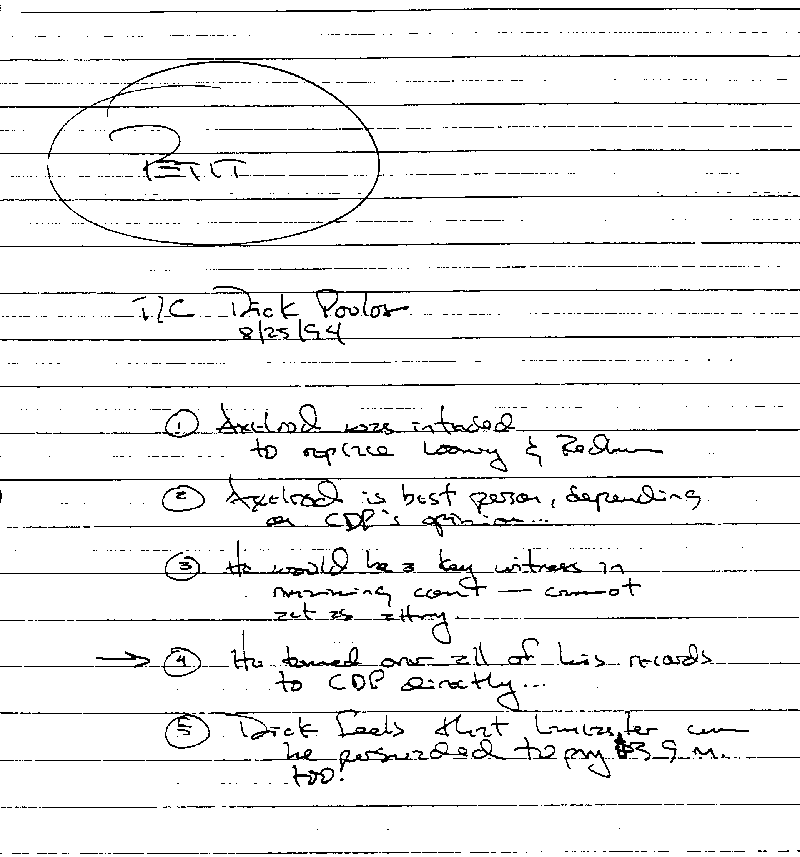 PETIT
T/C Dick Poulos
8/25/94
① Axelrod was intended
to replace Looney &
② Axelrod is best person, depending
on CDP's opinion...
③ He would be a key witness in
remaining count — cannot
act as attny.
→ ④ He turned over all of his records
to CDP directly...
⑤ Dick feels that can
be persuaded to pay $3.9 M.
too!